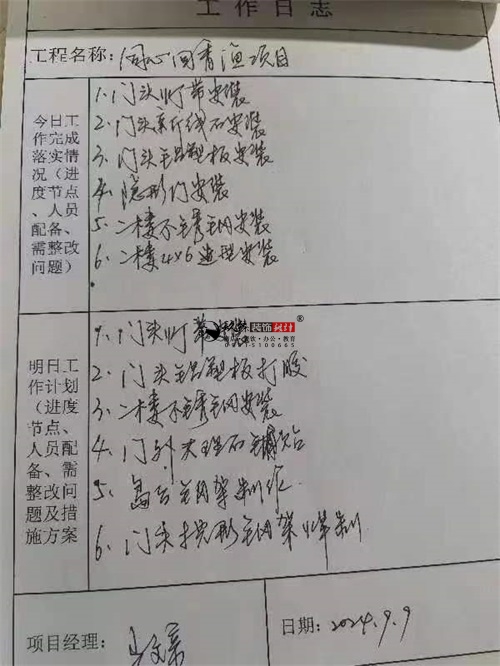 工作日志
工程名称：同心回香渔项目
今日工作完成落实情况（进度节点、人员配备、需整改问题）
1. 门头灯带安装
2. 门头亲行线石安装
3. 门头铝塑板安装
4. 隐形门安装
5. 二楼不锈钢安装
6. 二楼4×6造型安装
明日工作计划（进度节点、人员配备、需整改问题及措施方案
1. 门头灯
装饰设计
®
酒店·餐饮·办公·教育
2. 门头铝塑板打胶
3. 二楼不锈钢安装
4. 门外大理石铺贴
5. 岛台钢架制作
6. 门头拱形钢架焊制
项目经理：
日期：2024.9.9